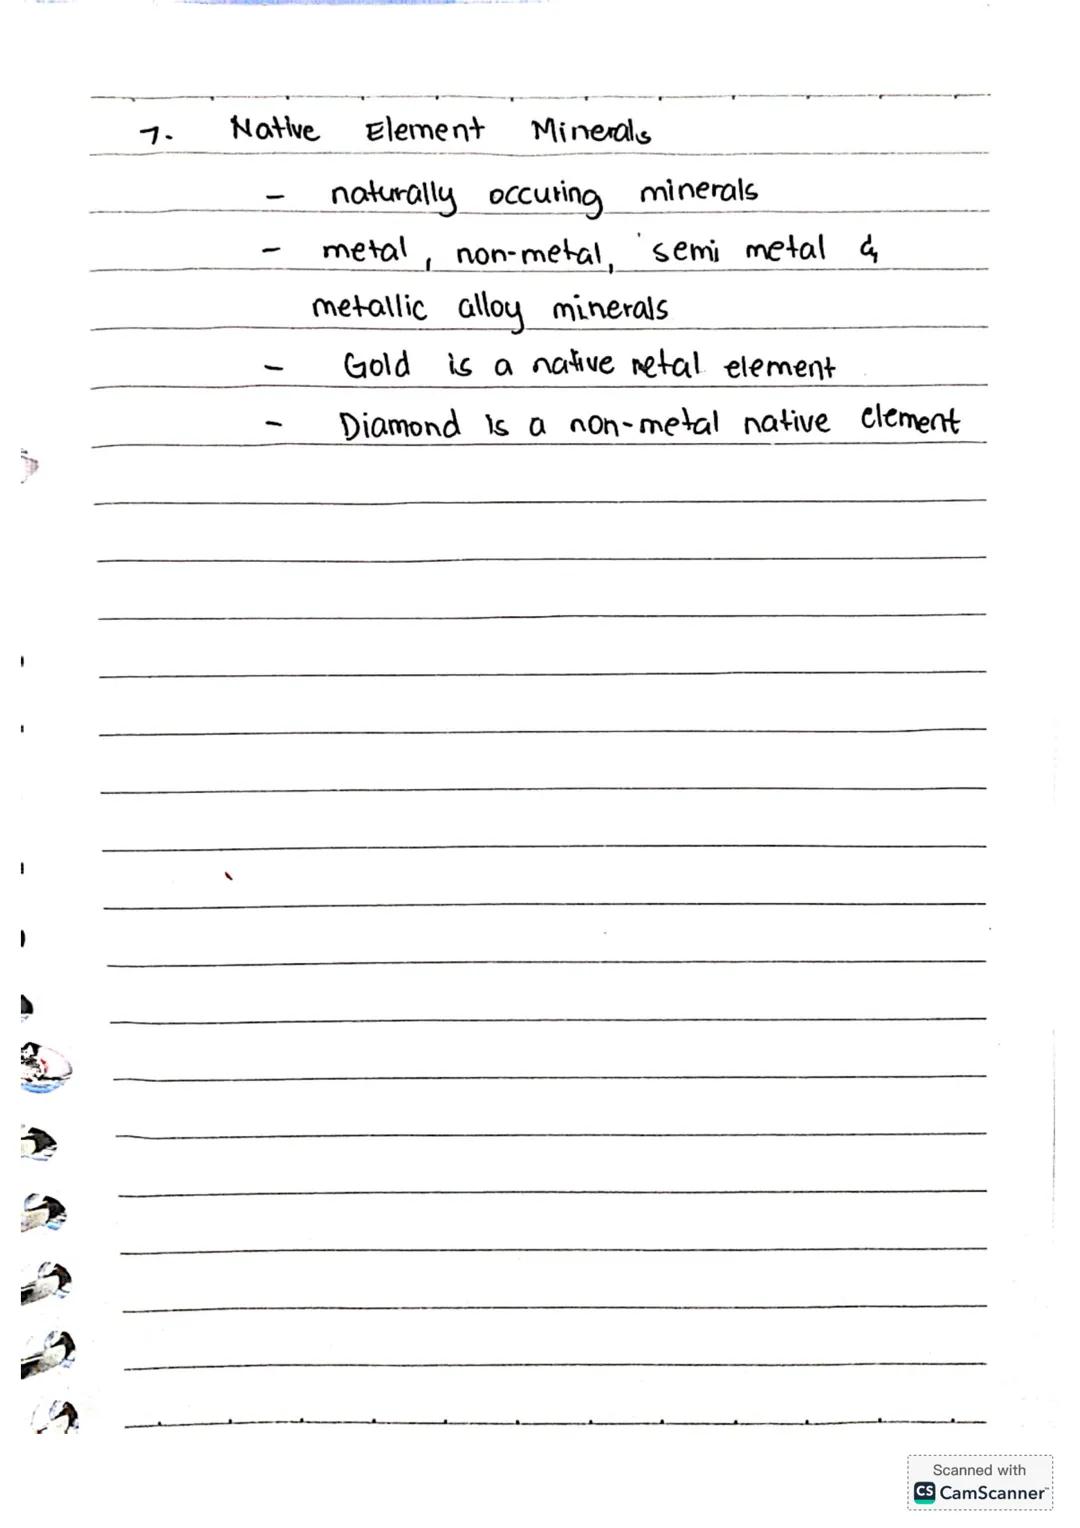 7. Native Element Minerals
- naturally occuring minerals
- metal, non-metal, semi metal &
metallic alloy minerals
- Gold is a native metal element
- Diamond is a non-metal native element
Scanned with
CS CamScanner